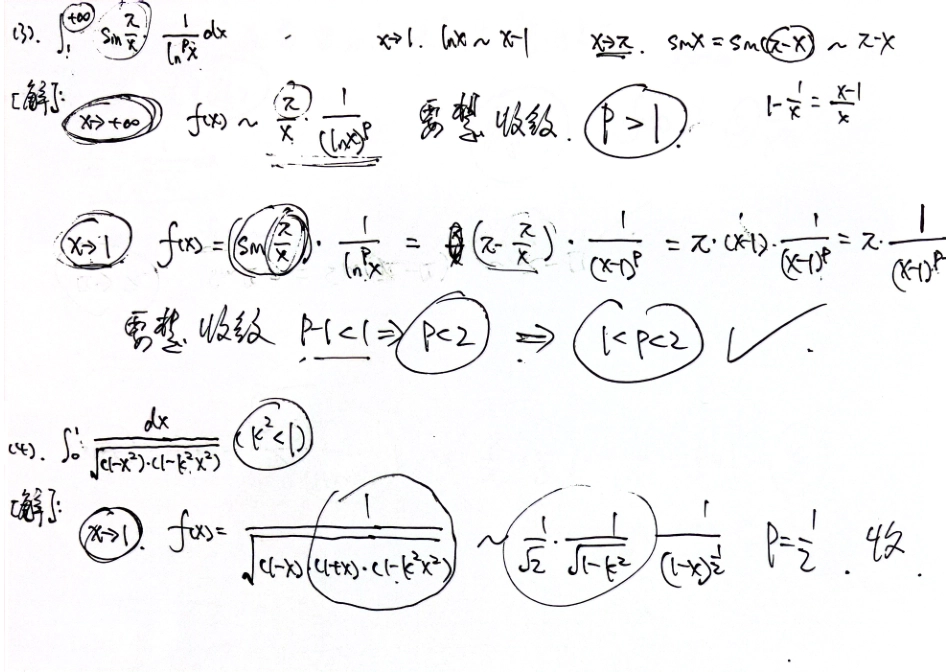 (3). ∫₁^{+∞} sin π/x · 1/ln^p x dx x→1. lnx ~ x-1 x→π. sinx = sin(π-x) ~ π-x
[解]: x→+∞ f(x) ~ π/x · 1/(lnx)^p 要想收敛. p>1. 1-1/x = (x-1)/x
x→1 f(x) = sin(π/x) · 1/ln^p x = (π-π/x) · 1/(x-1)^p = π·(x-1)· 1/(x-1)^p = π· 1/(x-1)^{p-
要想收敛 p-1<1 ⇒ p<2 ⇒ 1<p<2 ✓.
(4). ∫₀¹ dx/√((1-x²)·(1-k²x²)) (k²<1)
[解]: x→1. f(x) = 1/√((1-x)·(1+x)·(1-k²x²)) ~ 1/√2 · 1/√(1-k²) 1/(1-x)^{1/2} p=1/2. 收.